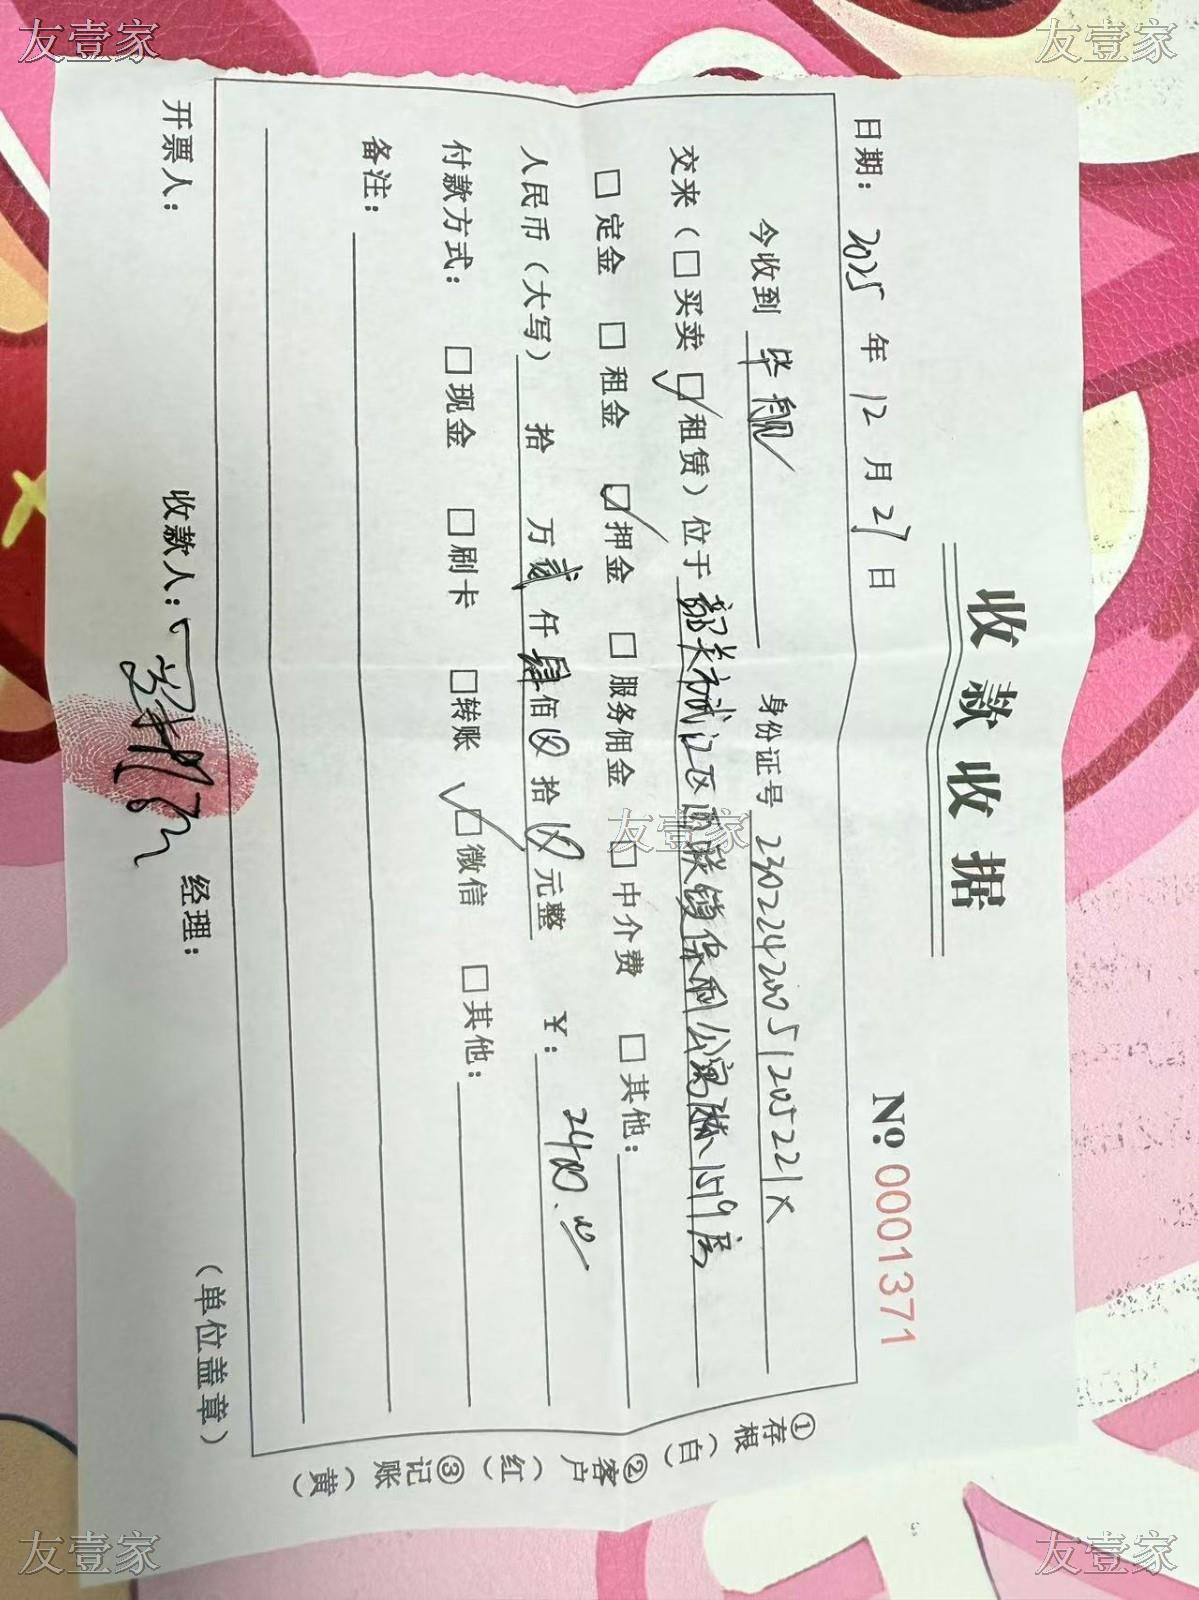 友壹家
友壹家
收款收据
№ 0001371
日期: 2025 年 12 月 27 日
今收到 毕 身份证号 23022420051205221X
交来(□买卖 ☑租赁)位于 韶关市浈江区 保利公寓 1519房
□定金 □租金 ☑押金 □服务佣金 □中介费 □其他:
人民币(大写) 拾 万贰仟肆佰 拾 元整 ¥: 2400.00
付款方式: □现金 □刷卡 □转账 ☑微信 □其他:
备注:
开票人: 收款人: 经理: (单位盖章)
①存根(白) ②客户(红) ③记账(黄)
友壹家
友壹家
友壹家